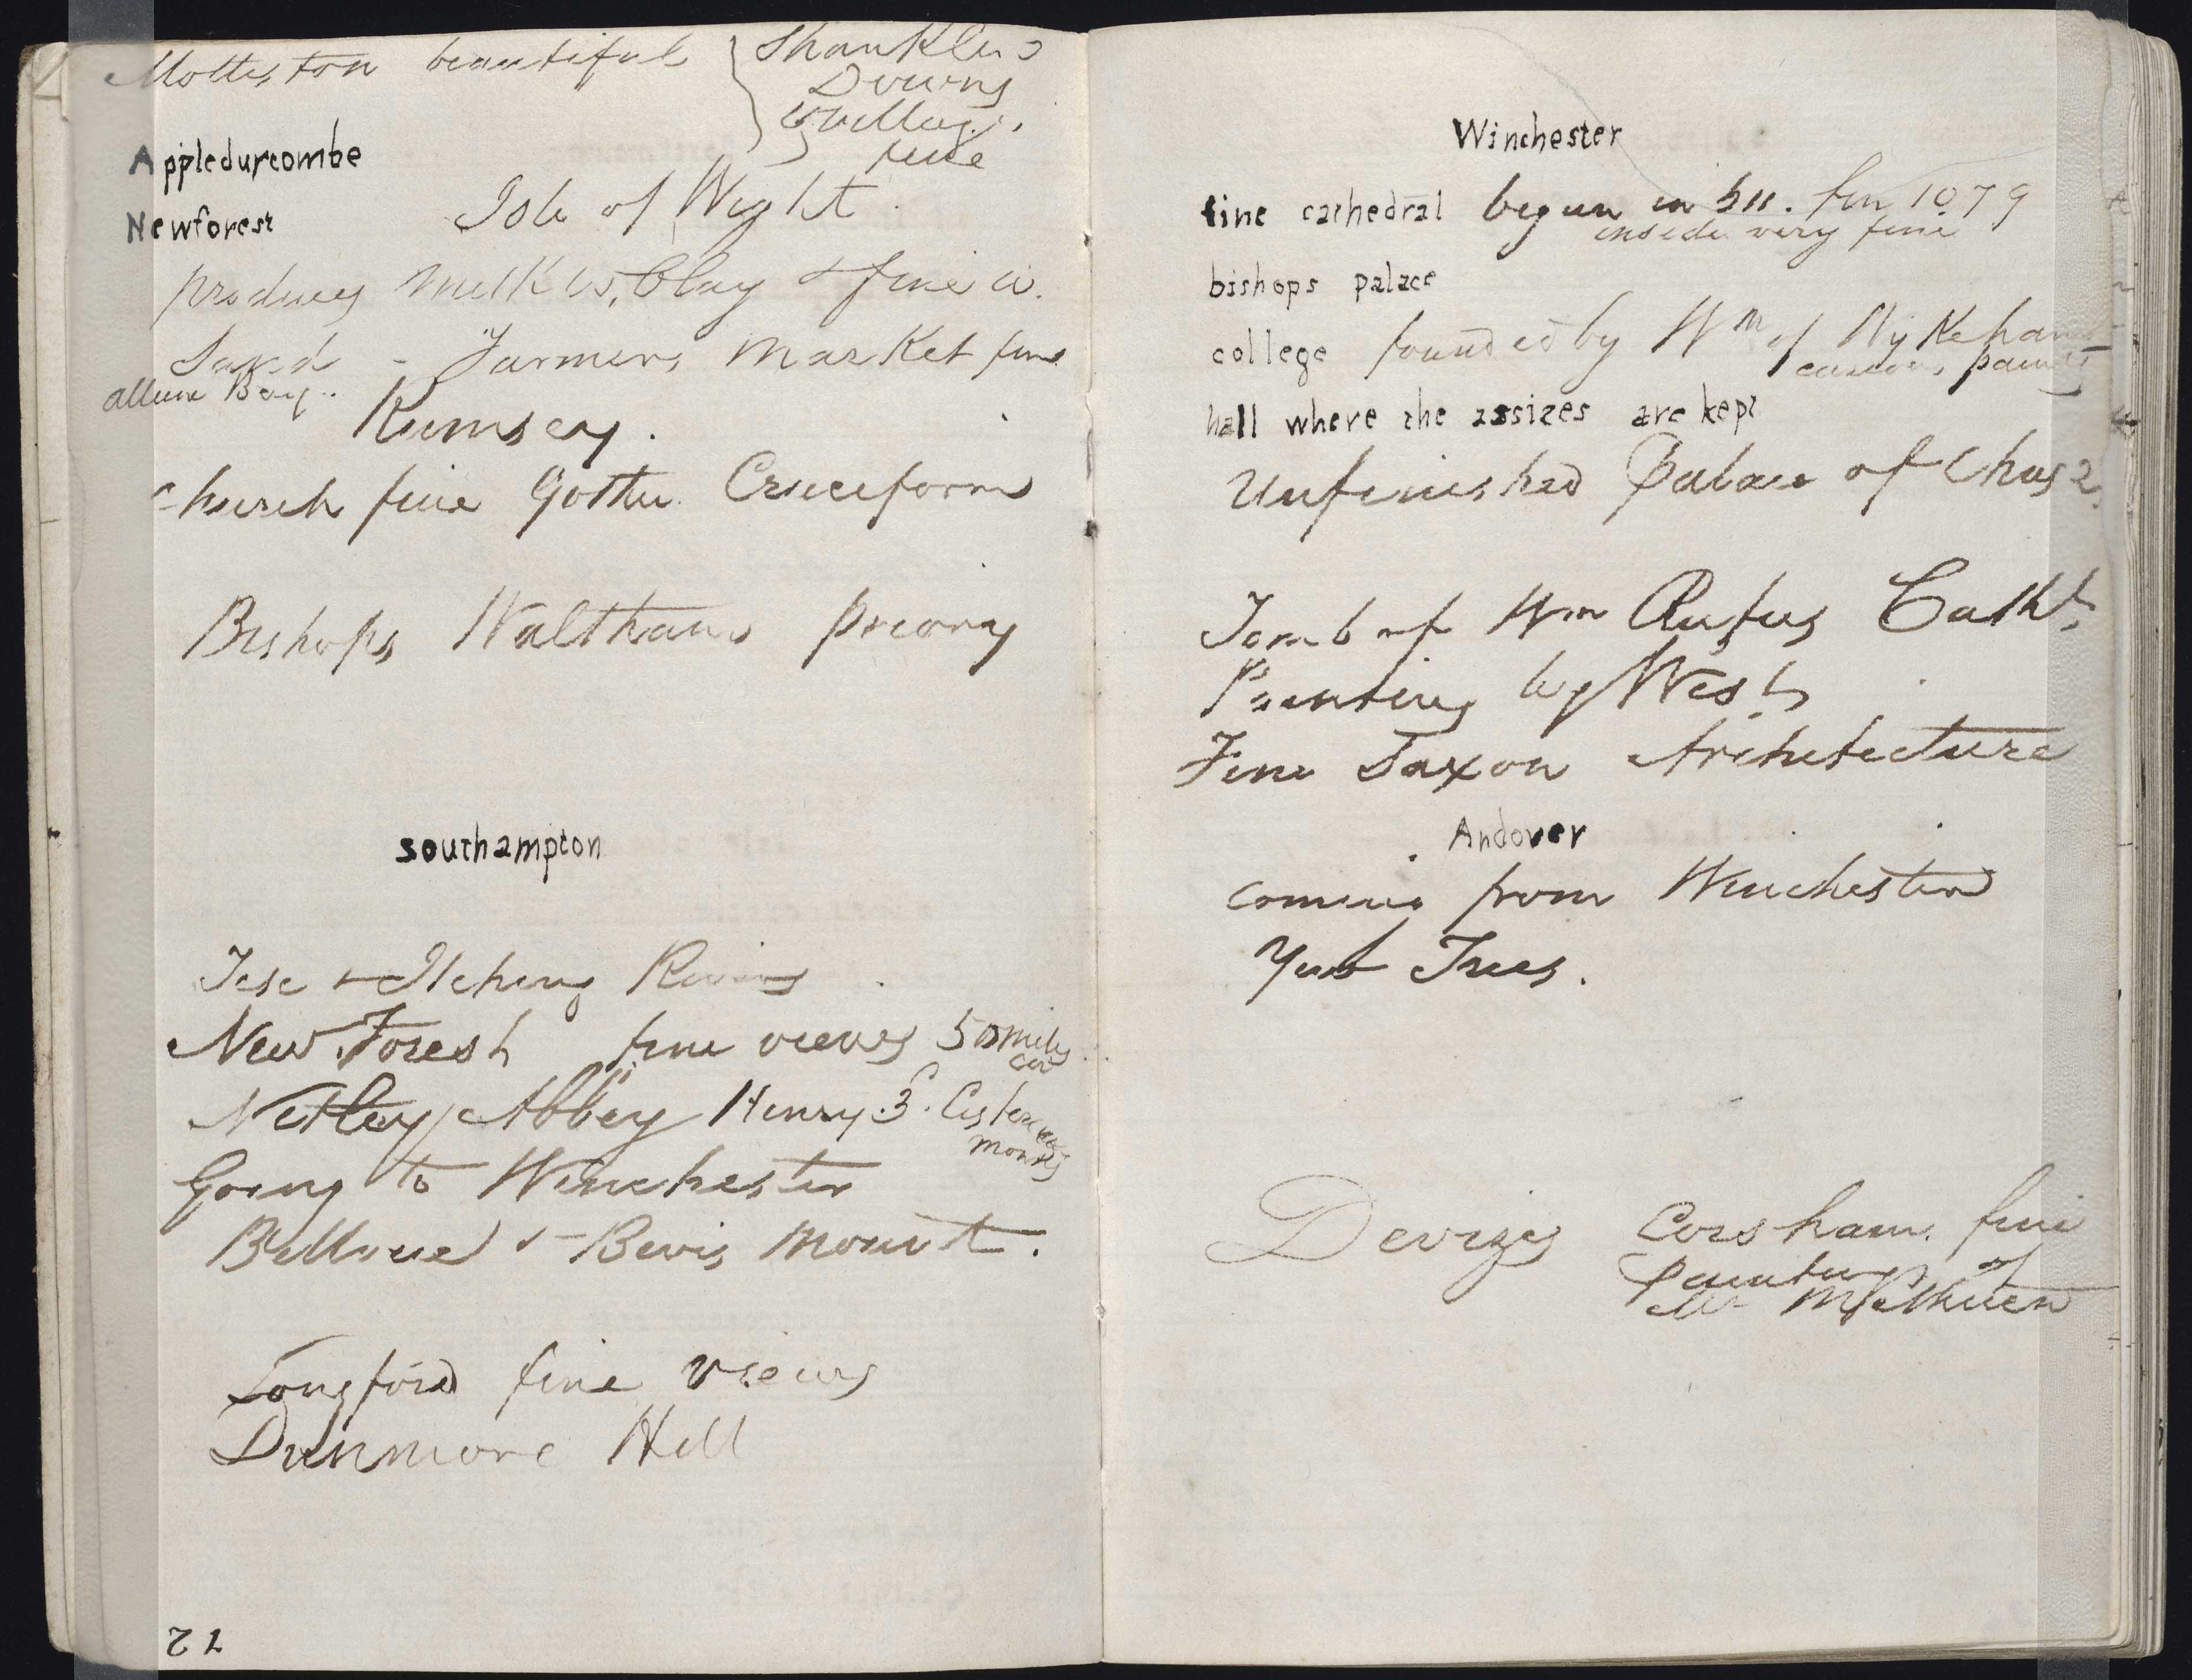 Mottiston beautiful
Shanklin
Downs
Village
fine
Appledurcombe
Newforest
Isle of Wight.
produces milk Clay & fine w.
Sand - Farmers Market fine
allum Bay.
Rumsey.
Church fine Gothic Cruciform
Bishops Waltham priory
southampton
Tese & Itching Rivers
New Forest fine views 50 miles
cir
Netley Abbey Henry 3. Cistercian
monks
Going to Winchester
Bellvue & Bevis Mount.
Longford fine views
Dunmore Hill
21
Winchester
fine cathedral begun in 611. fin 1079
inside very fine
bishops palace
college founded by Wm of Wykeham
curious paint
hall where the assizes are kept
Unfinished Palace of Chas 2.
Tomb of Wm Rufus Cathl.
Painting by West
Fine Saxon Architecture
Andover
coming from Winchester
Yew Trees.
Devizes Corsham. fine
paintings of
Mr Methuen